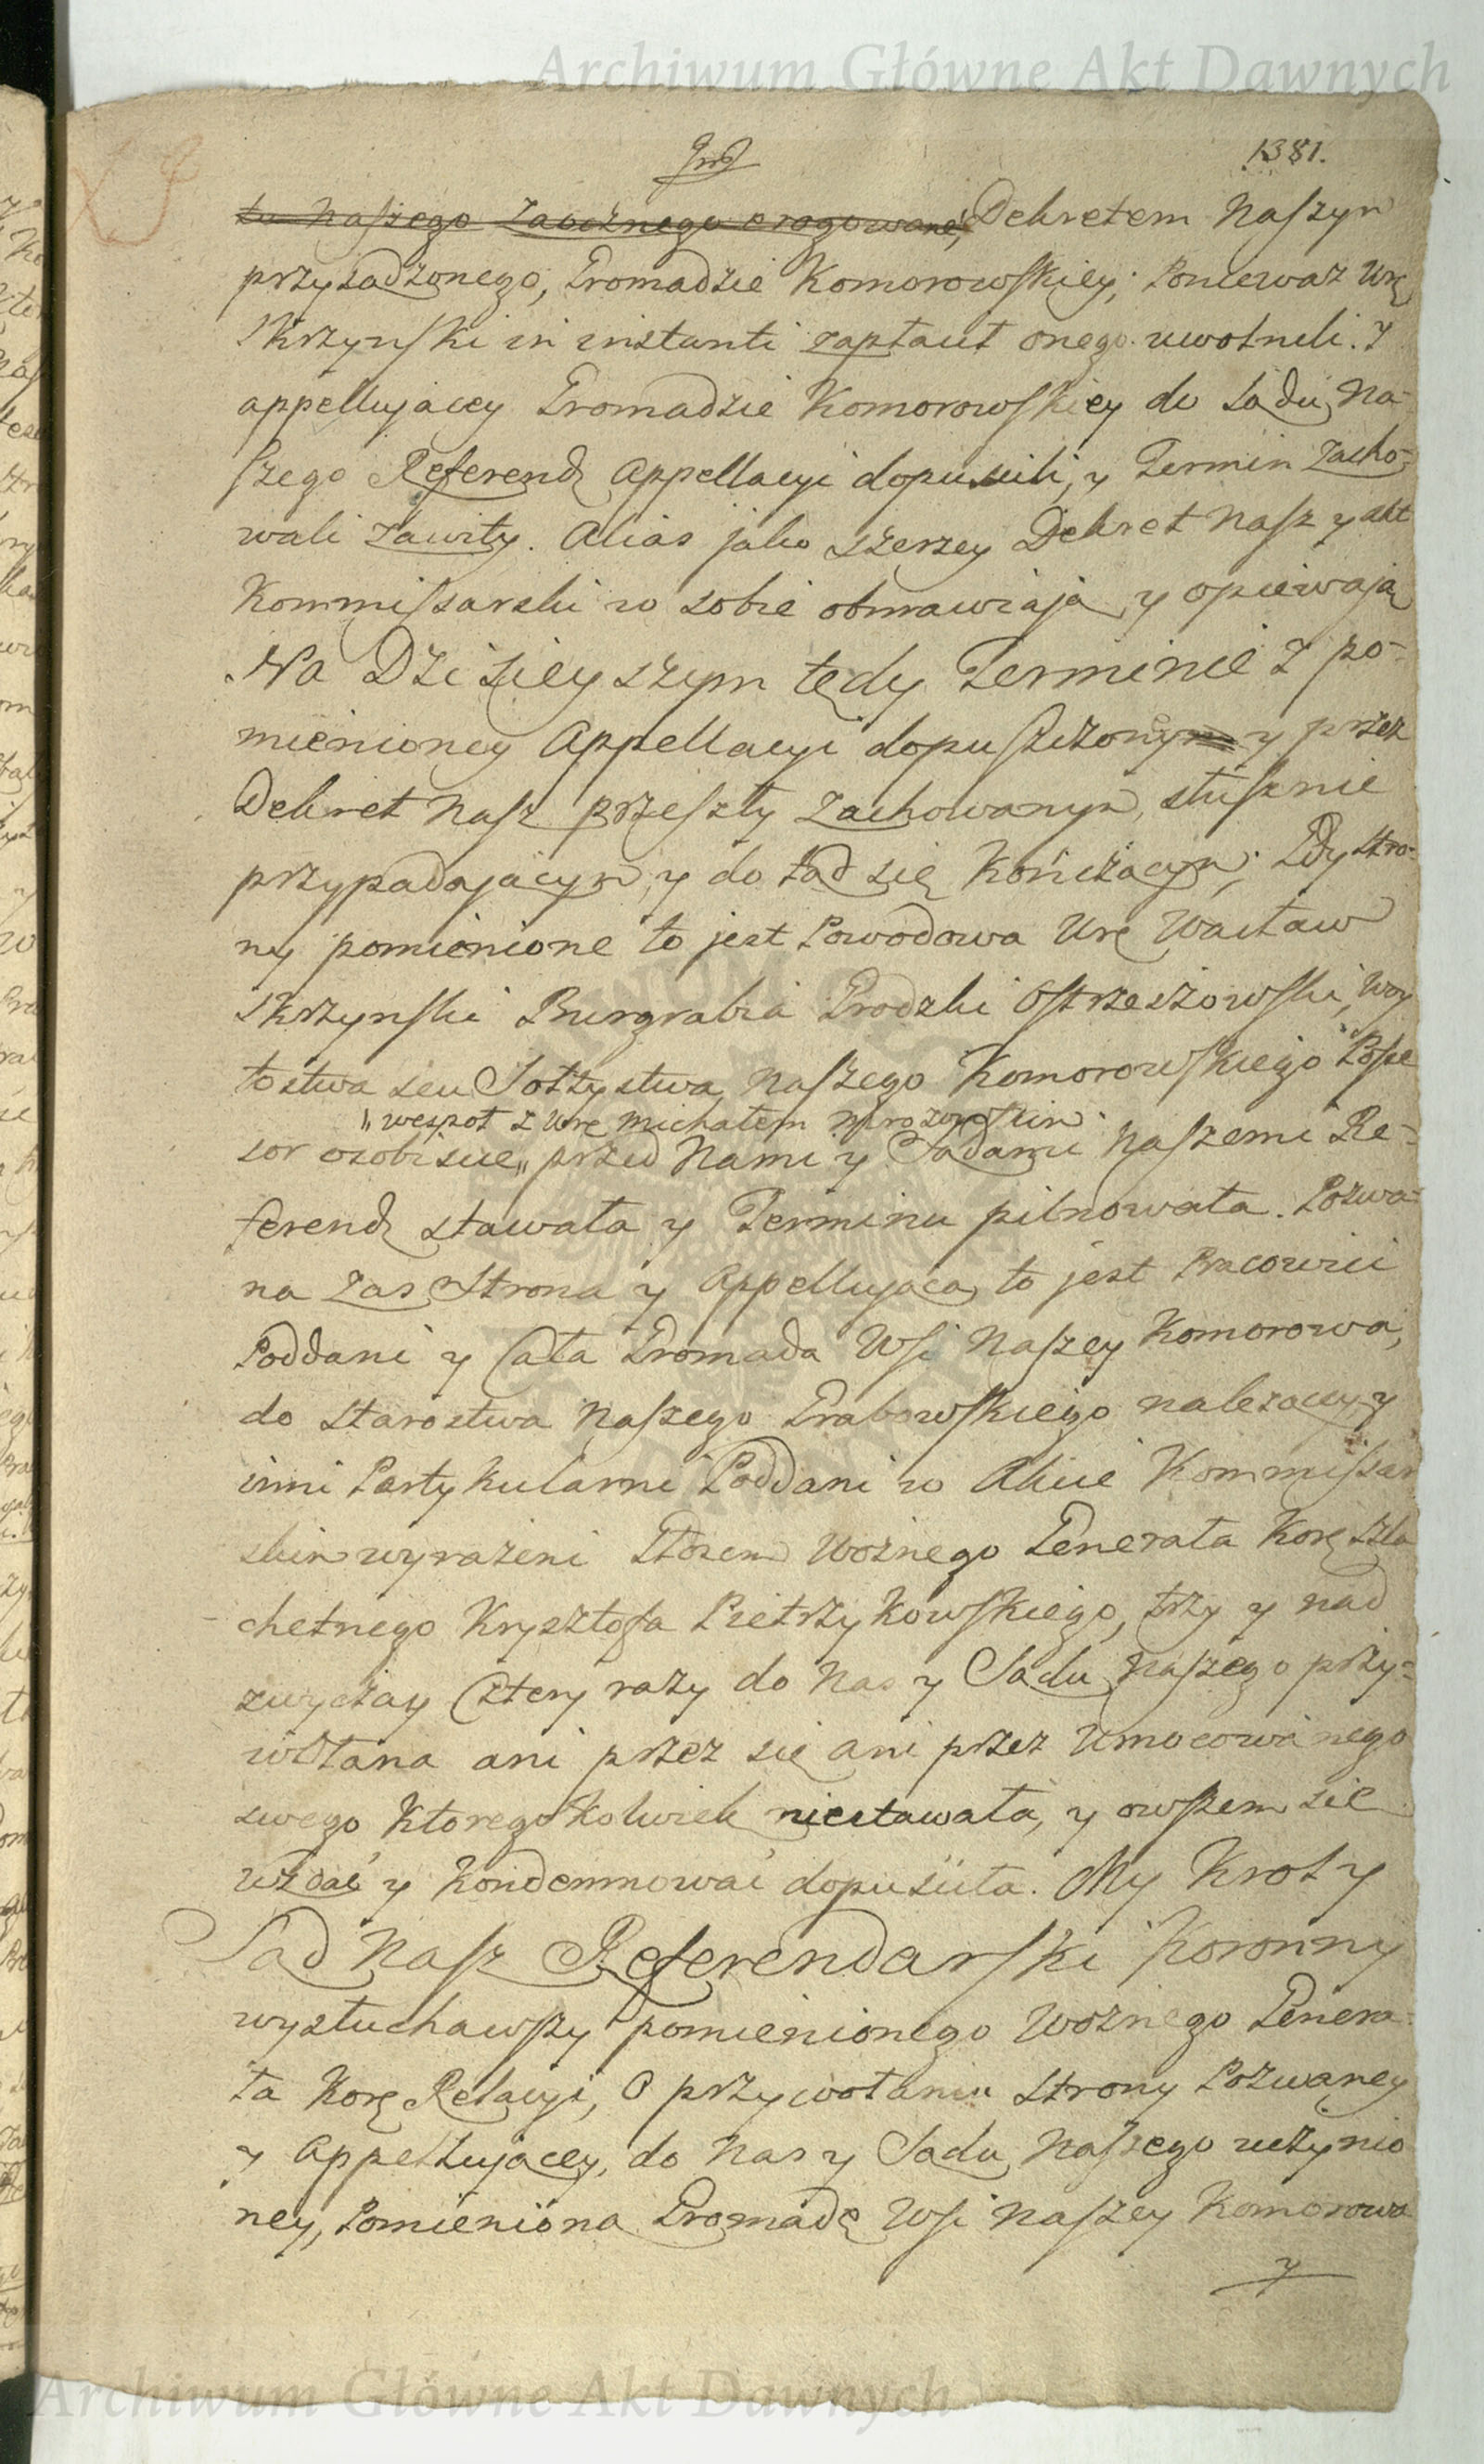 Archiwum Główne Akt Dawnych
1381.
tu Naszego zaocznego erogowane, Dekretem Naszym
przysądzonego, Gromadzie Komorowskiey; Ponieważ Urę
Skrzynski in instanti zapłacił onego uwolnili. I
appellującey Gromadzie Komorowskiey do Sądu Na-
szego Referend Appellacyi dopuscili, y Termin zacho-
wali zawity. Alias jako szerzey Dekret Nasz y akt
Kommissarski w sobie obmawiają y opiewają
Na Dzisieyszym tedy Terminie z po-
mienioney Appellacyi dopuszczonym y przez
Dekret Nasz przeszły zachowanym, słusznie
przypadającym, y do tąd się Kończącym; Gdy stro-
ny pomienione to jest Powodowa Urę Wacław
Skrzynski Burgrabia Grodzki Ostrzeszowski, Woy
tostwa seu Sołtystwa Naszego Komorowskiego Posse
"wespoł z Urę Michałem Mrozowskim
sor osobiscie" przed Nami y Sądami Naszemi Re-
ferend stawała y Terminu pilnowała. Pozwa-
na zas Strona y Appellująca, to jest Pracowici
Poddani y Cała Gromada Wsi Naszey Komorowa,
do Starostwa Naszego Grabowskiego należący, y
inni Partykularni Poddani w Akcie Kommissar
skim wyrażeni Głosem Woźnego Generała Korę Szla
chetnego Krysztofa Pietrzykowskiego, trzy y nad
zwyczay Cztery razy do Nas y Sądu Naszego przy-
wołana ani przez się ani przez Umocowanego
swego Ktoregożkolwiek niestawała, y owszem się
wzdać y Kondemnować dopusciła. My Krol y
Sąd Nasz Referendarski Koronny
wysłuchawszy pomienionego Woźnego Genera-
ła Korę Relacyi, o przywołaniu Strony Pozwaney
y Appellującey, do Nas y Sądu Naszego uczynio
ney, Pomieniona Gromadę Wsi Naszey Komorowa
y
Archiwum Główne Akt Dawnych